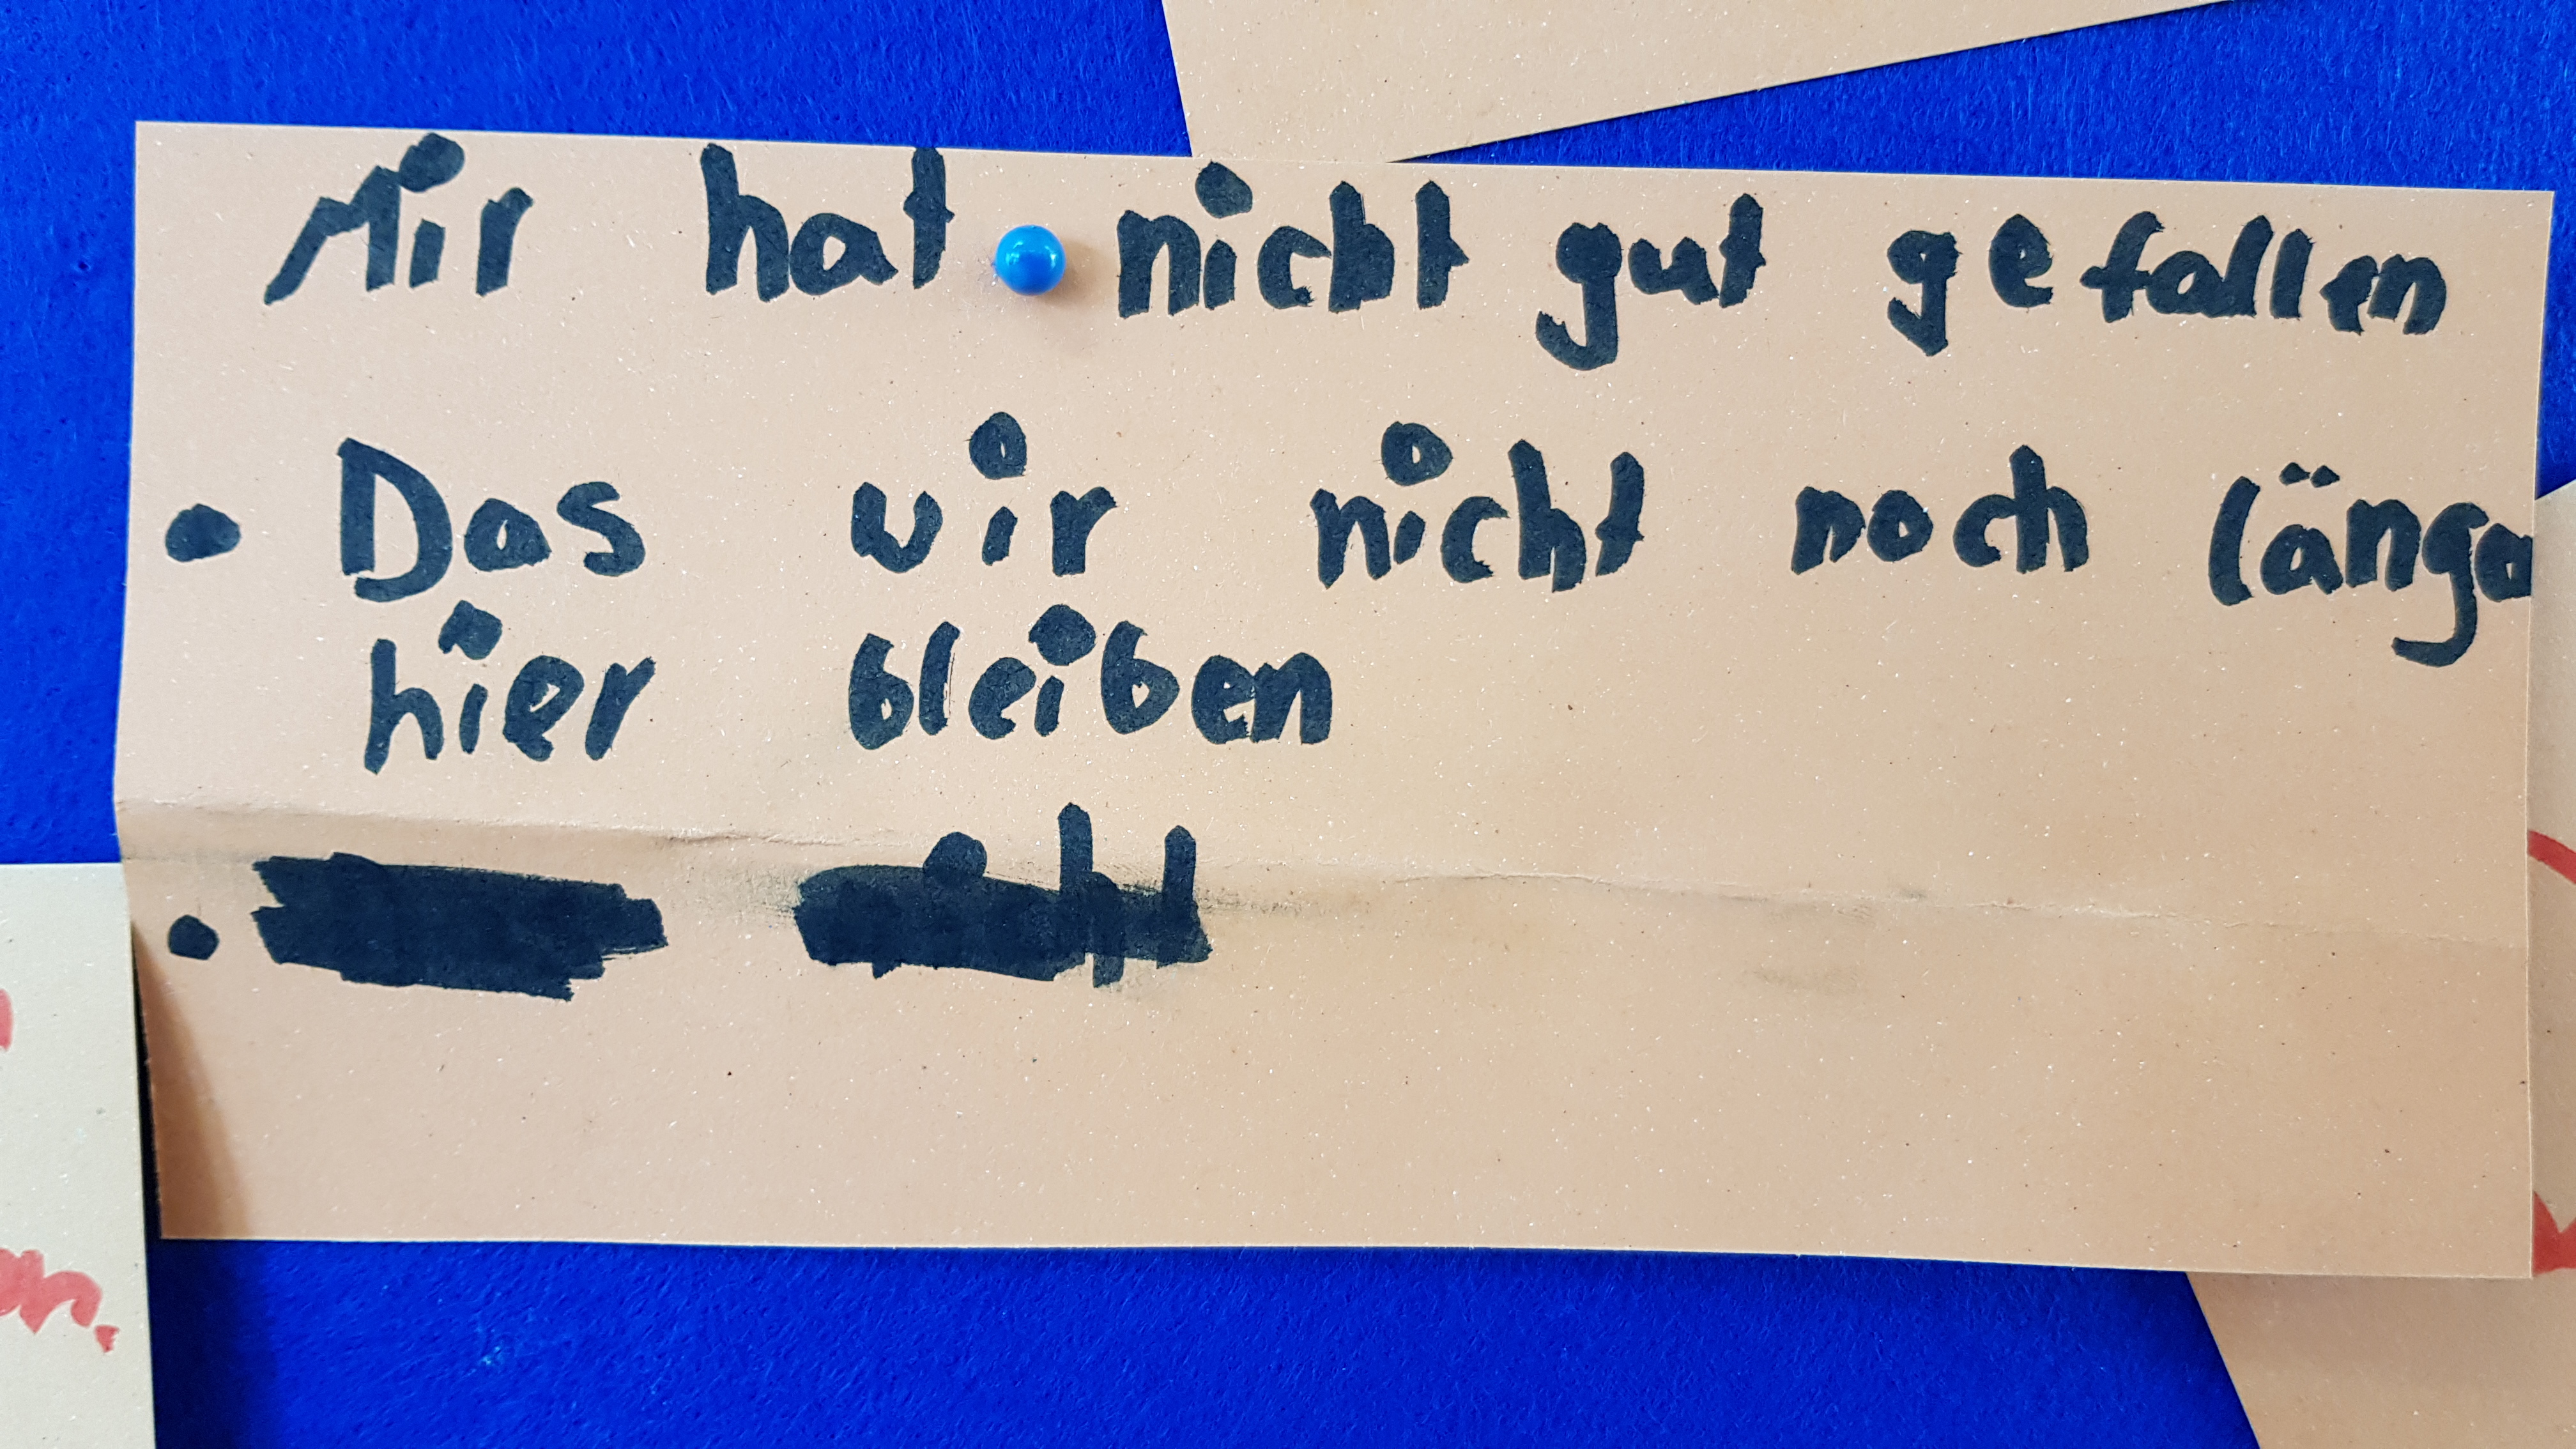 Mir hat nicht gut gefallen
• Das wir nicht noch länga
hier bleiben
•